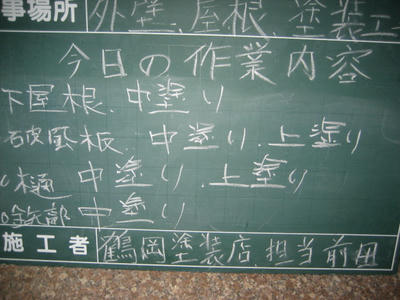 事場所 外壁、屋根、塗装工
今日の作業内容
下屋根、中塗り
破風板、中塗り、上塗り
樋 中塗り、上塗り
鉄部 中塗り
施工者 鶴岡塗装店、担当前田